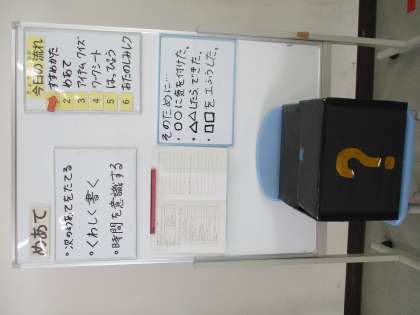 今日の流れ
1 すすめかた
2 めあて
3 アイテムクイズ
4 ワークシート
5 はっぴょう
6 おたのしみ
そのために…
・〇〇に気を付けた。
・△△したら、できた。
・□□を工ふうした。
めあて
・次のめあてをたてる
・くわしく書く
・時間を意識する
?